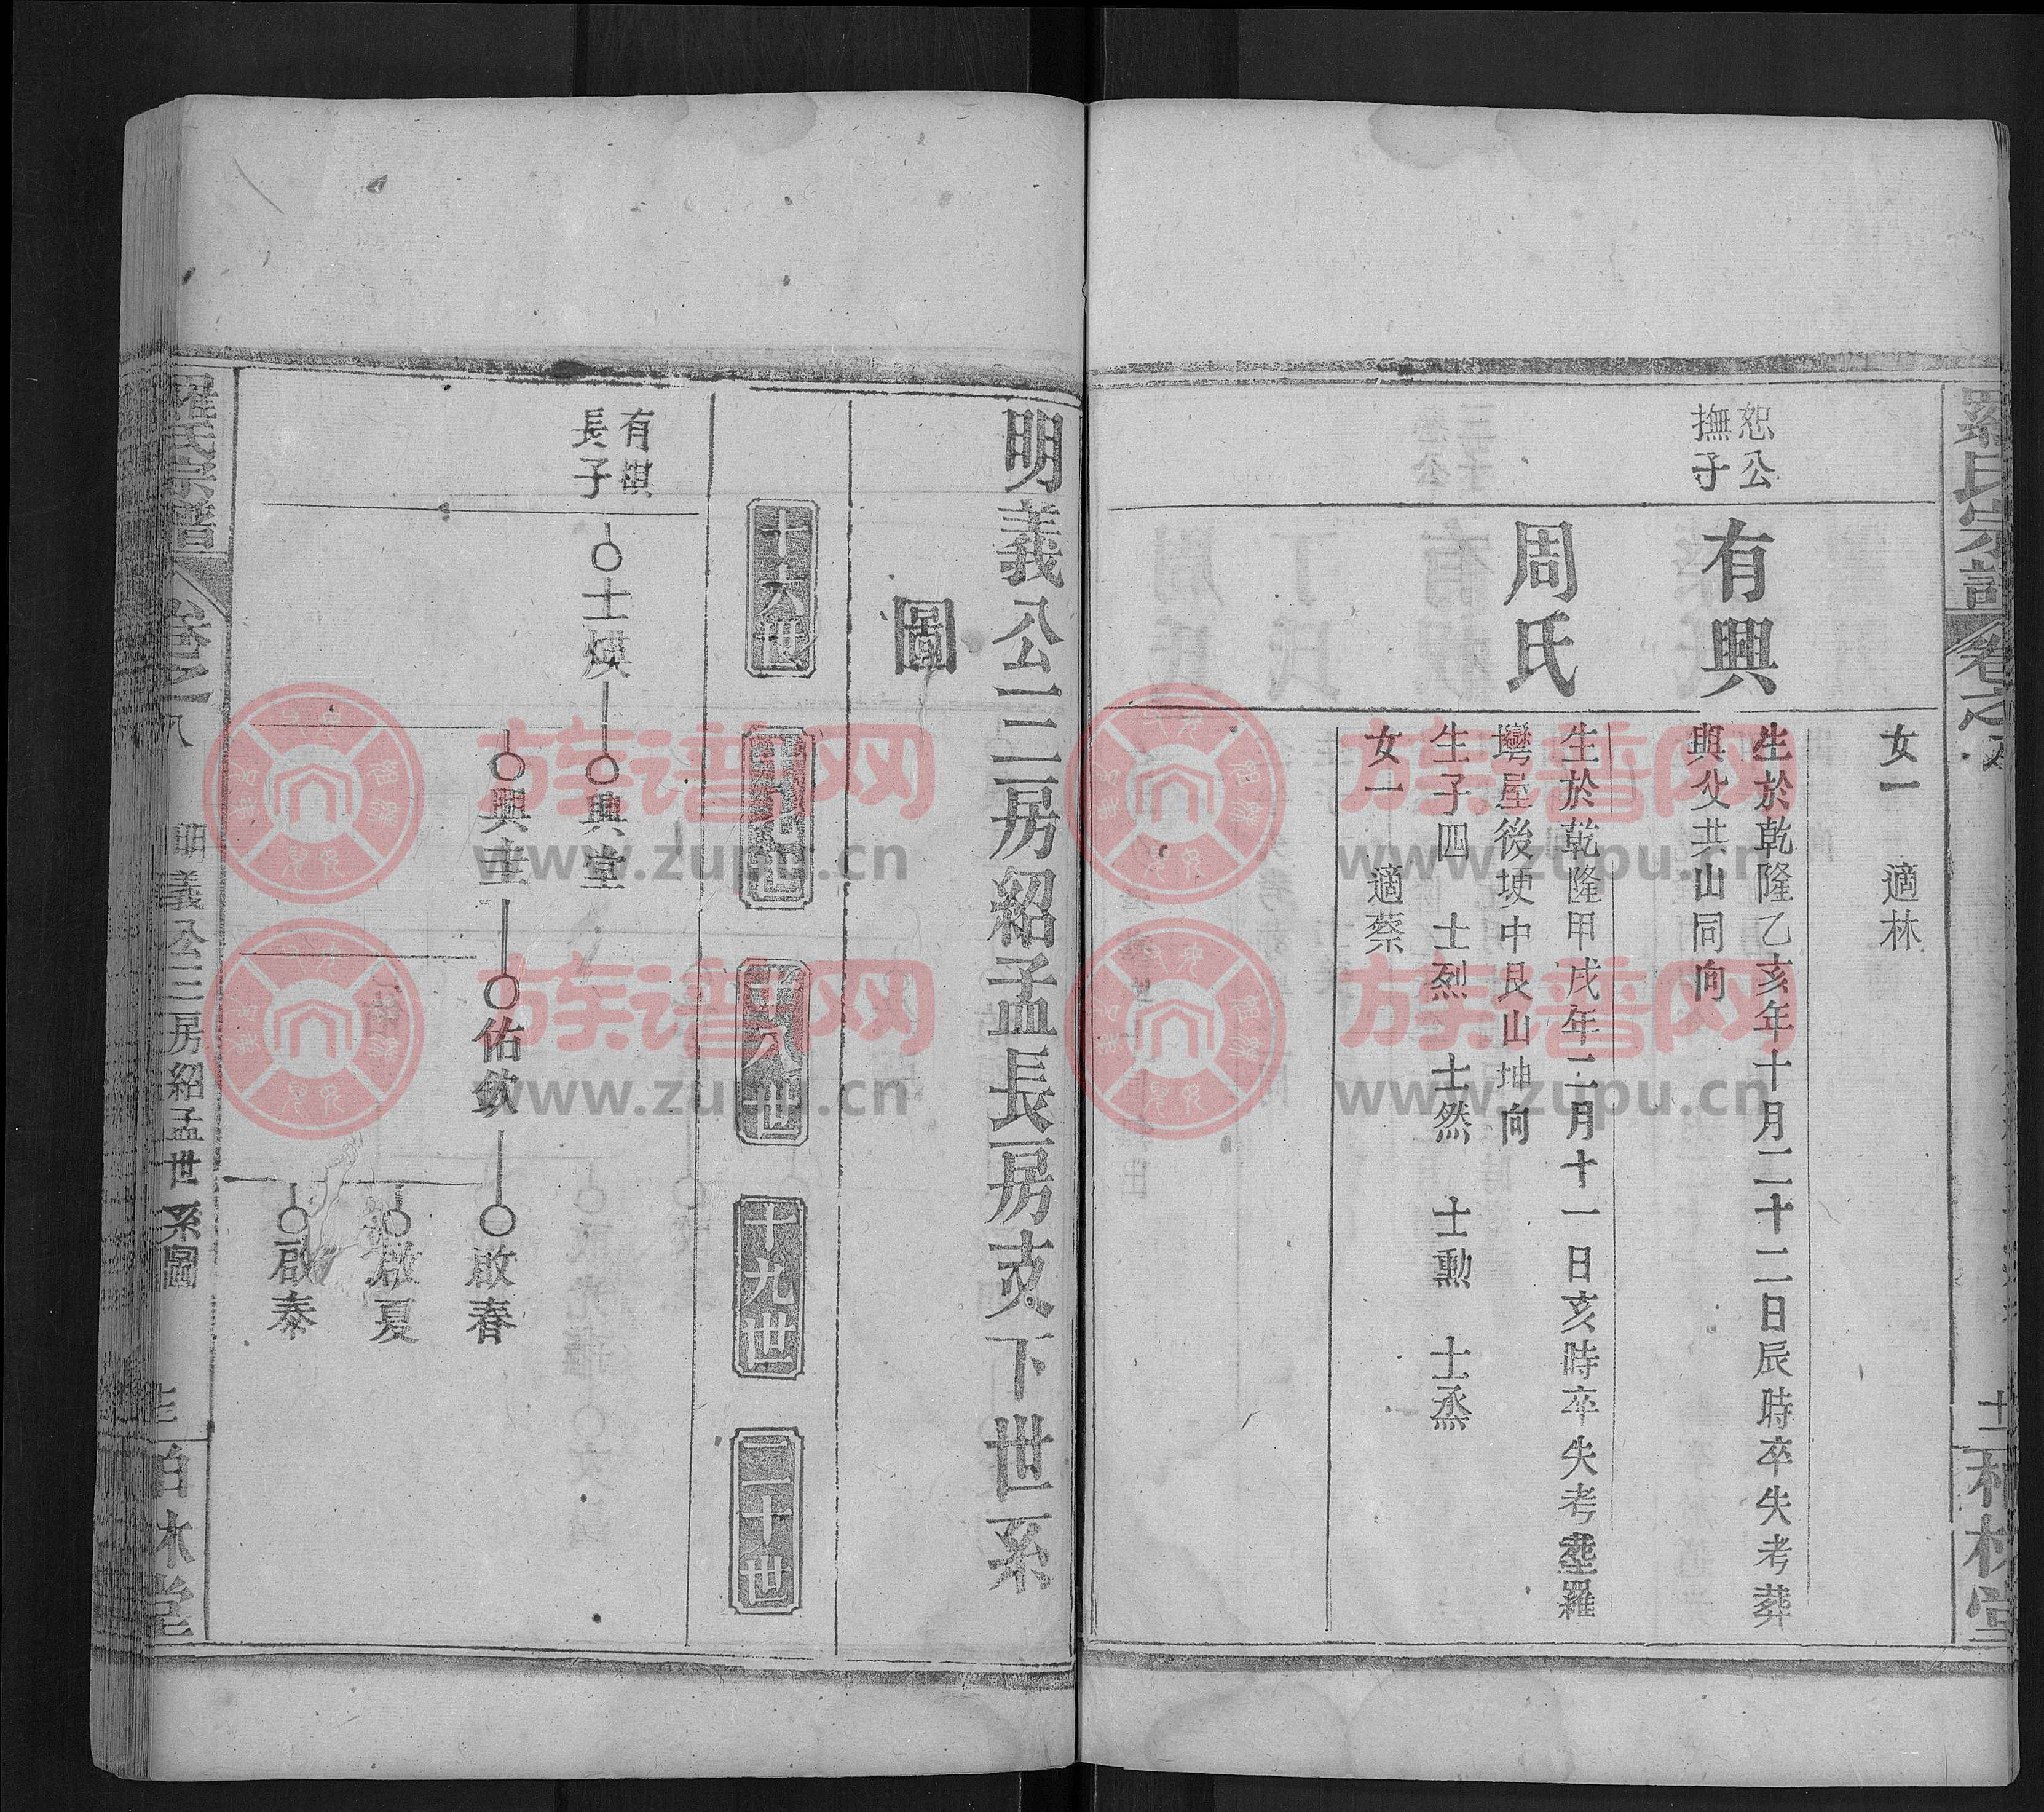 女一　適林
恕公
撫子
有興
生於乾隆乙亥年十月二十二日辰時卒失考葬
與父共山同向
周氏
生於乾隆甲戌年二月十一日亥時卒失考塟羅
塆屋後埂中艮山坤向
生子四　士烈　士然　士勳　士烝
女一　適蔡
羅氏宗譜
卷之八
柏林堂
明義公三房紹孟長房支下世系
圖
十六世
十七世
十八世
十九世
二十世
有祺
長子
士熯
興堂
興圭
佑欽
啟春
啟夏
啟泰
羅氏宗譜
卷之八
明義公三房紹孟世系圖
柏林堂
族谱网
www.zupu.cn
族谱网
www.zupu.cn
族谱网
www.zupu.cn
族谱网
www.zupu.cn